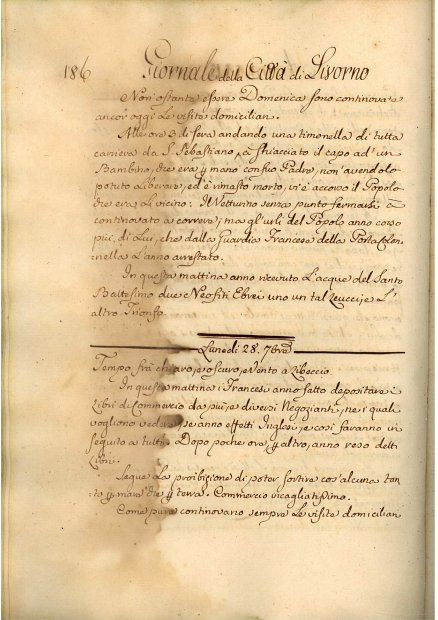 186 Giornale della Città di Livorno
Non' ostante essere Domenica sono continovate
ancor' oggi le visite domiciliari.
Alle ore 3 di sera andando una timonella di tutta
carriera da S. Sebastiano, à stiacciato il capo ad' un
Bambino, che era p mano con suo Padre, non' avendolo
potuto liberare, ed' è rimasto morto, vi è accorso il Popolo
che era lì vicino: Il Vetturino senza punto fermarsi à
continovato a correre, ma gl' urli del Popolo anno corso
più, di Lui, che dalla Guardia Francese della Porta Colon-
nella l'anno arrestato.
In questa mattina anno ricevuto l'acque del Santo
Battesimo due Neofiti Ebrei uno un tal e l'
altro Trionfo.
Lunedì 28. 7bre
Tempo frà chiaro, e oscuro, e Vento a Libeccio.
In questa mattina i Francesi anno fatto depositare i
Libri di Commercio da più, e diversi Negozianti, ne i quali
vogliono vedere se anno effetti Inglesi, e così faranno in
seguito a tutti. Dopo poche ore p altro, anno reso detti
Libri.
Segue la proibizione di poter sortire cos' alcuna tan-
to p mare che p terra. Commercio incagliatissimo.
Come pure continovano sempre le visite domiciliari